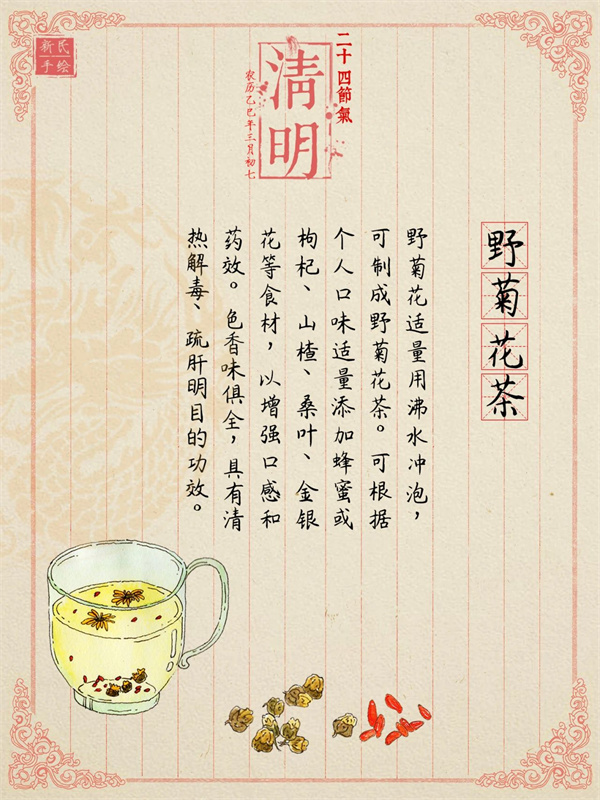 新氏
手绘
二十四節氣
清明
农历乙巳年三月初七
野菊花茶
野菊花适量用沸水冲泡，
可制成野菊花茶。可根据
个人口味适量添加蜂蜜或
枸杞、山楂、桑叶、金银
花等食材，以增强口感和
药效。色香味俱全，具有清
热解毒、疏肝明目的功效。